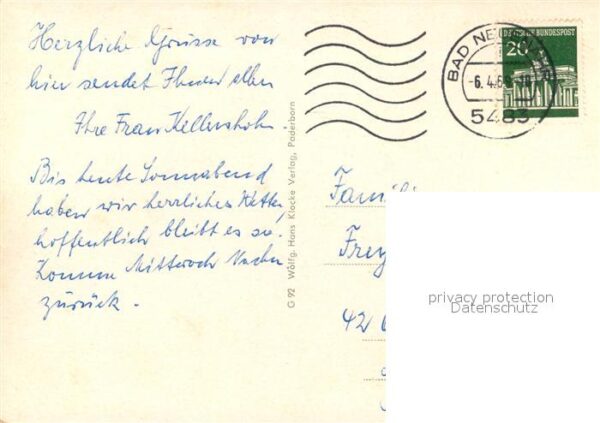 Herzliche Grüsse von
hier sendet Ihnen allen
Ihre Frau Kellershohn.
Bis heute Sonnabend
haben wir herrliches Wetter,
hoffentlich bleibt es so.
Komme Mittwoch Nachm
zurück.
G 92 Wolfg. Hans Klocke Verlag, Paderborn
DEUTSCHE BUNDESPOST
20
BAD
-6.4.6
5483
Famili
Frey
42
privacy protection
Datenschutz